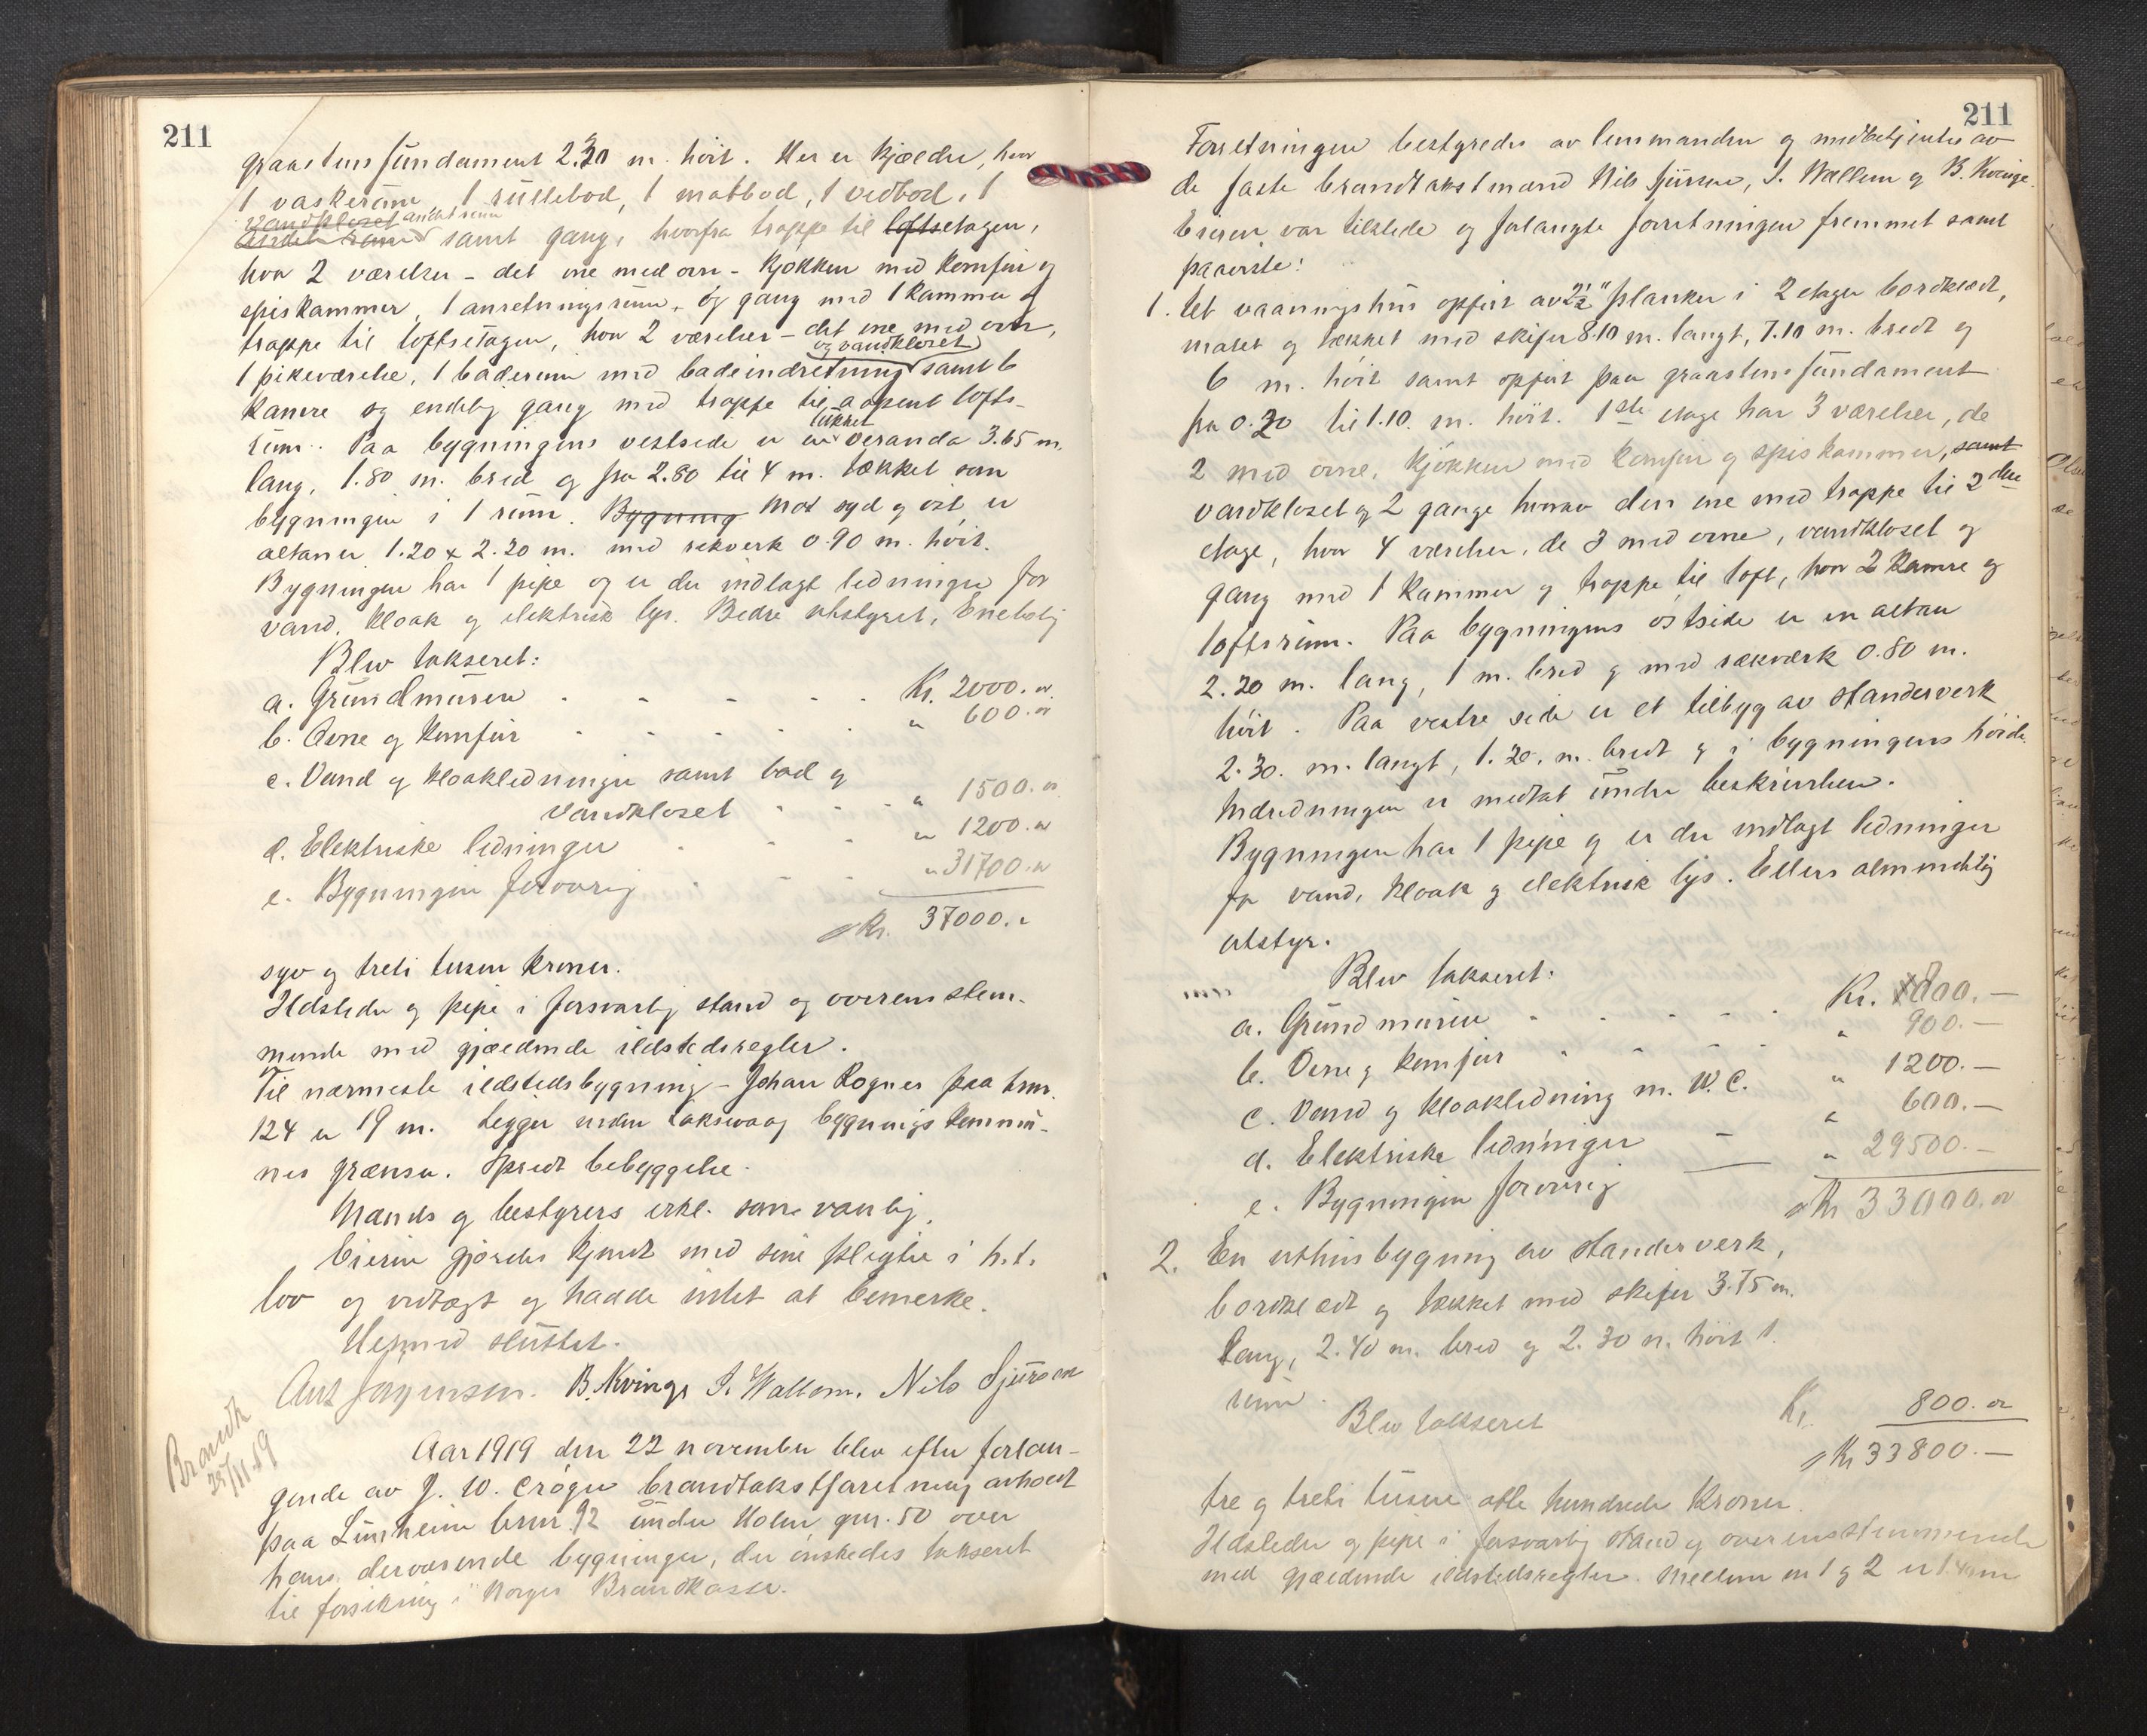 211
graastens fundament 2.30 m. høit. Her er kjælder, hvor
1 vaskerum, 1 rullebod, 1 matbod, 1 vedbod, 1
vandkloset andet rum
samt gang, hvorfra trappe til loftsetagen,
hvor 2 værelser - det ene med ovn - kjøkken med komfur og
spiskammer, 1 anretningsrum, og gang med 1 kammer og
trappe til loftsetagen, hvor 2 værelser - det ene med ovn,
og vandkloset
1 pikeværelse, 1 baderum med badeindretning samt 6
kamre og endelig gang med trappe til aapent lofts-
lukket
rum. Paa bygningens vestside er en veranda 3.65 m.
lang, 1.80 m. bred og fra 2.80 til 4 m. tækket som
bygningen i 1 rum. Bygning Mot syd og øst er
altaner 1.20 x 2.20 m. med rekverk 0.90 m. høit.
Bygningen har 1 pipe og er der indlagt ledninger for
vand, kloak og elektrisk lys. Bedre utstyret, Enebolig
Blev takseret:
a. Grundmuren Kr. 2000.
b. Ovne og komfur " 600.
c. Vand og kloakledninger samt bad og
vandkloset " 1500.
d. Elektriske ledninger " 1200.
e. Bygningen forøvrig " 31700.
Kr. 37000.
syv og treti tusen kroner.
Ildsteder og pipe i forsvarlig stand og overenstem-
mende med gjældende ildstedsregler.
Til nærmeste ildstedsbygning - Johan Rognes paa brnr.
124 er 19 m. Ligger inden Laksevaag bygningskommu-
nes grænser. Spredt bebyggelse.
Mænds og bestyrers erkl. som vanlig.
Eieren gjordes kjendt med sine pligter i h.t.
lov og vedtægt og hadde intet at bemerke.
Hermed sluttet.
Ant Jørgensen. B. Kvinge S. Wallem. Nils Sjursen
Brandk
25/11.19
Aar 1919 den 22 november blev efter forlan-
gende av J. W. Crøger brandtakstforretning avholdt
paa Lunheim brnr. 92 under Holen gnr. 50 over
hans derværende bygninger, der ønskedes takseret
til forsikring i Norges Brandkasse.
211
Forretningen bestyredes av lensmanden og medbetjentes av
de faste brandtakstmænd Nils Sjursen, S. Wallem og B. Kvinge.
Eieren var tilstede og forlangte forretningen fremmet samt
paaviste:
1. Et vaaningshus opført av 2½" planker i 2 etager bordklædt,
malet og tækket med skifer 8.10 m. langt, 7.10 m. bredt og
6 m. høit samt opført paa graastens fundament
fra 0.20 til 1.10 m. høit. 1ste etage har 3 værelser, de
2 med ovne, kjøkken med komfur og spiskammer, samt
vandkloset og 2 gange hvorav den ene med trappe til 2den
etage, hvor 4 værelser, de 3 med ovne, vandkloset og
gang med 1 kammer og trappe til loft, hvor 2 kamre og
loftsrum. Paa bygningens østside er en altan
2.20 m. lang, 1 m. bred og med rækværk 0.80 m.
høit. Paa vestre side er et tilbyg av standerverk
2.30. m. langt, 1.20. m. bredt og i bygningens høide.
Indredningen er medtat under beskrivelsen.
Bygningen har 1 pipe og er der indlagt ledninger
for vand, kloak og elektrisk lys. Ellers almindelig
utstyr.
Blev takseret:
a. Grundmuren Kr. 800.—
b. Ovne og komfur " 900.—
c. Vand og kloakledning m. W.C. " 1200.—
d. Elektriske ledninger " 600.—
e. Bygningen forøvrig " 29500.—
Kr 33000.
2. En uthusbygning av standerverk,
bordklædt og tækket med skifer 3.75 m.
lang, 2.40 m. bred og 2.30 m. høit 1
rum.
Blev takseret Kr. 800.
Kr 33800.—
tre og treti tusen otte hundrede kroner.
Ildsteder og pipe i forsvarlig stand og overenstemmende
med gjældende ildstedsregler. Mellem nr 1 og 2 er 1.40 m